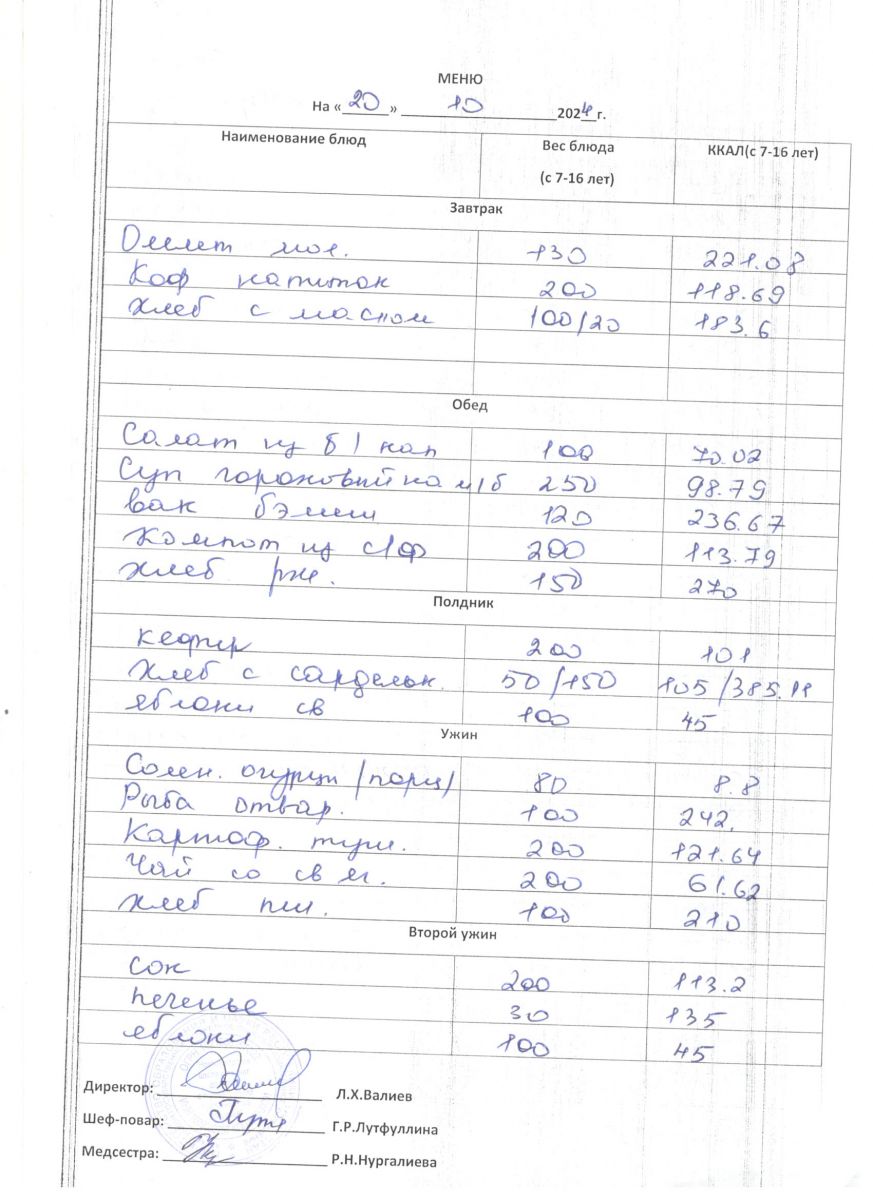 МЕНЮ
На «20» 10 2024г.
Наименование блюд Вес блюда (с 7-16 лет) ККАЛ(с 7-16 лет)
Завтрак
Омлет мол. 130 221.08
Коф напиток 200 118.69
Хлеб с маслом 100/20 183.6
Обед
Салат из б/кап 100 70.02
Суп гороховый на м/б 250 98.79
Вак бэлиш 120 236.67
Компот из с/ф 200 113.79
Хлеб рж. 150 270
Полдник
кефир 200 101
Хлеб с сардельк. 50/150 105/385.11
яблоки св 100 45
Ужин
Солен. огурцы (порц) 80 8.8
Рыба отвар. 100 242.
Картоф. туш. 200 121.64
Чай со св яг. 200 61.62
Хлеб пш. 100 210
Второй ужин
Сок 200 113.2
печенье 30 135
яблоки 100 45
Директор: Л.Х.Валиев
Шеф-повар: Г.Р.Лутфуллина
Медсестра: Р.Н.Нургалиева